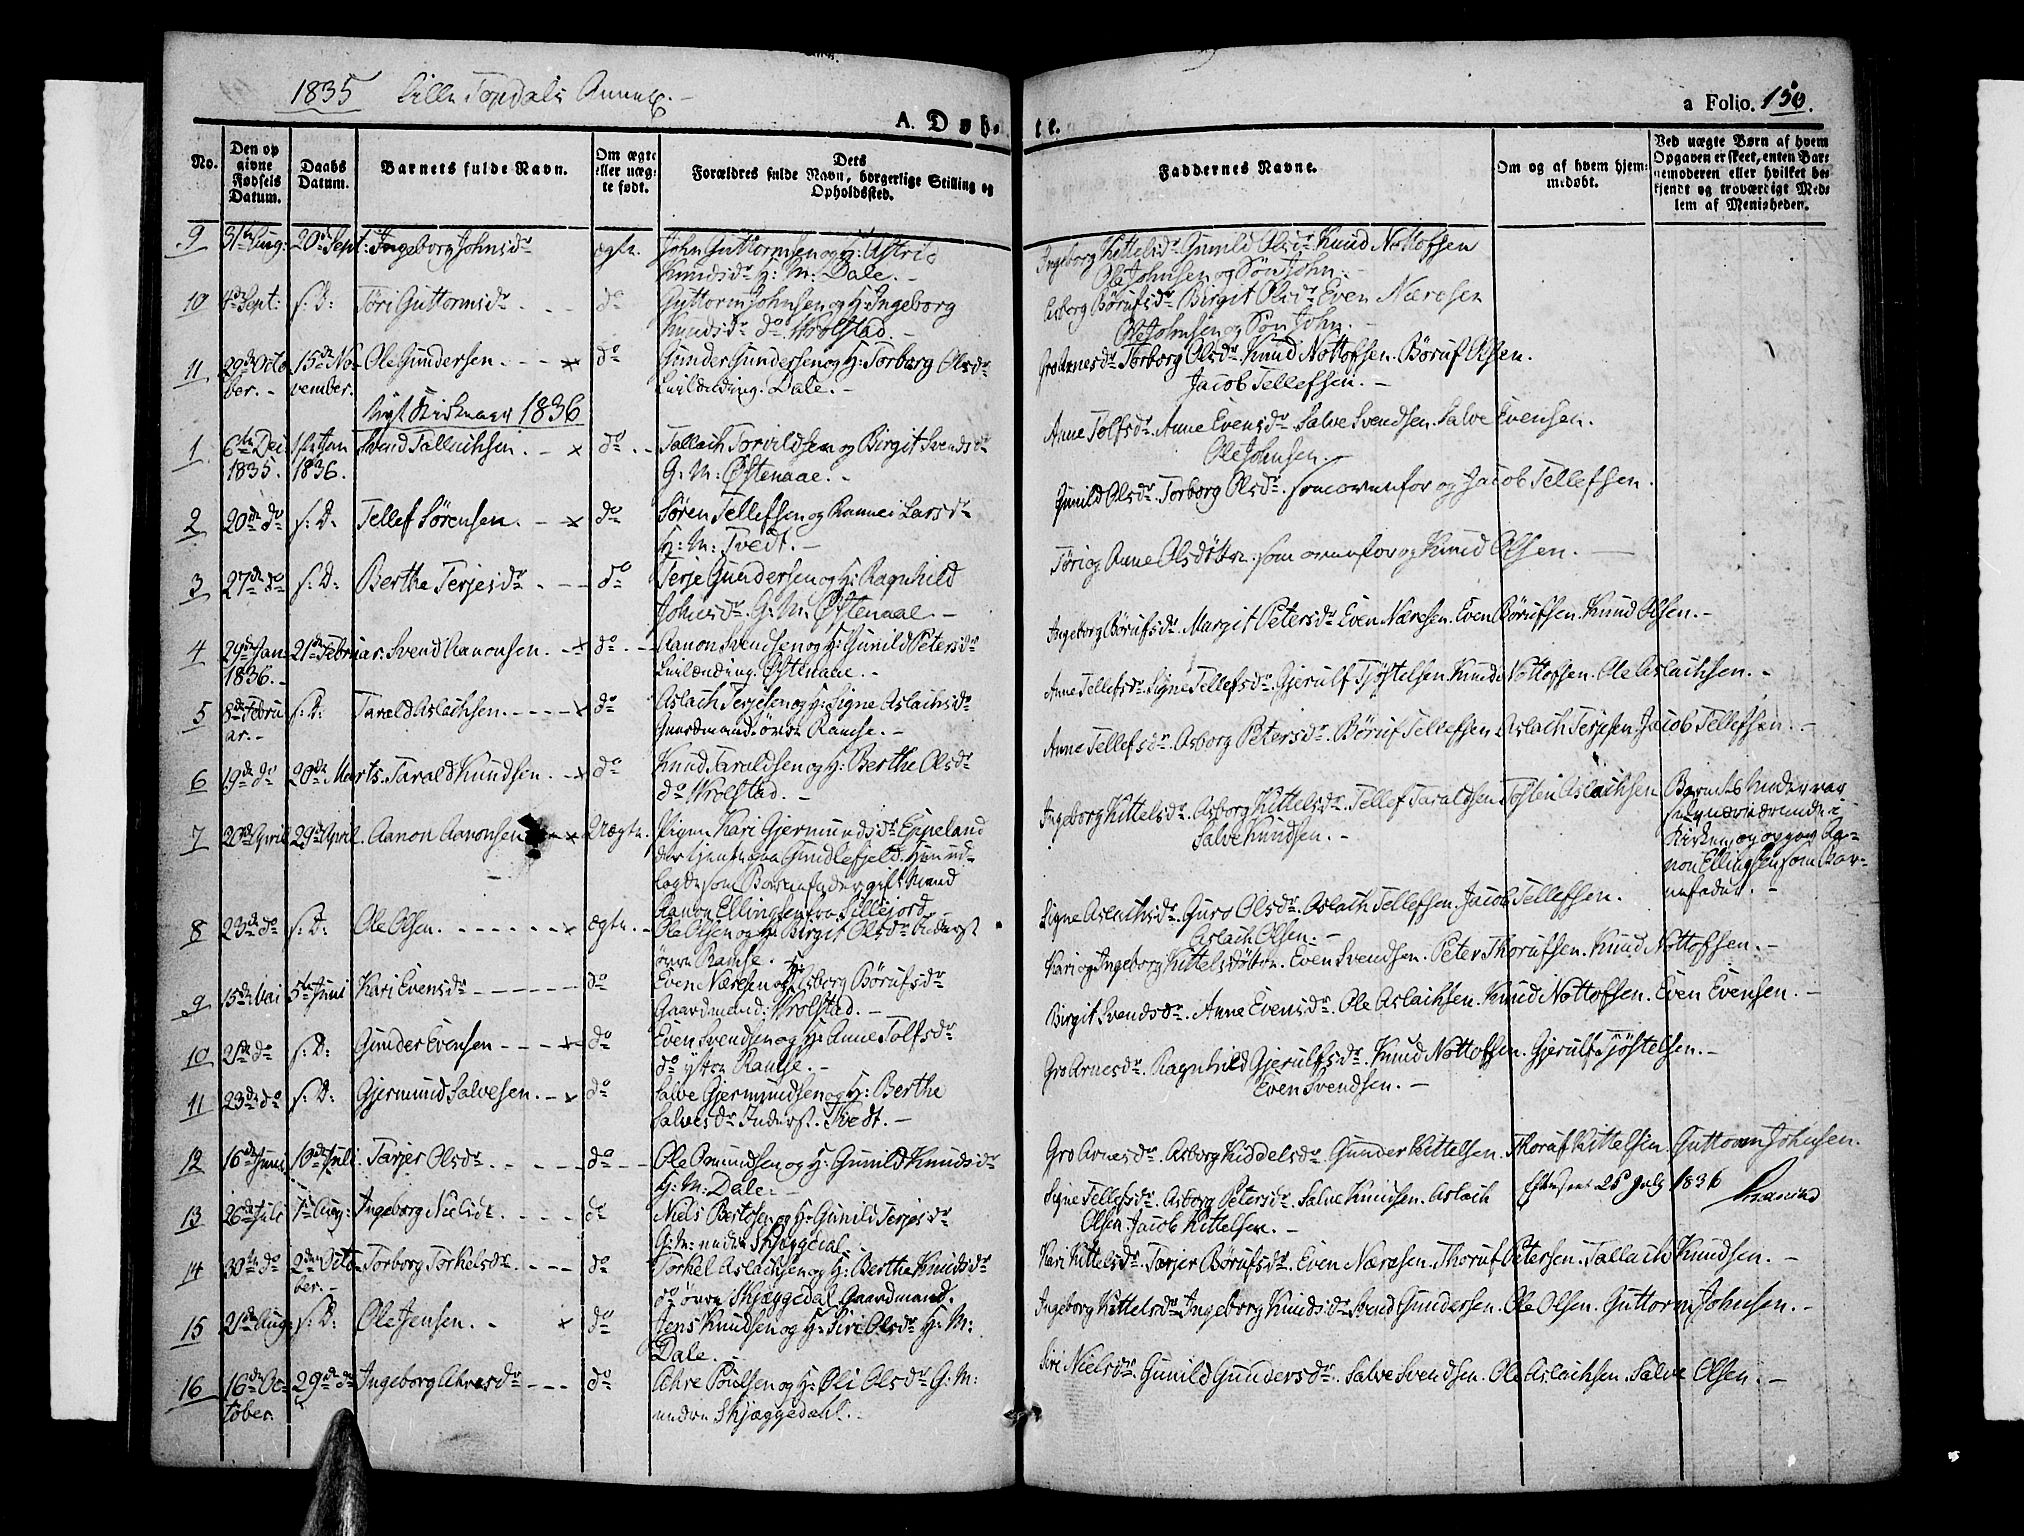 1835 Lille Topdals Annex.
A. Døb-
te.
a Folio. 150.
No.
Den op
givne
Fødsels
Datum.
Daabs
Datum.
Barnets fulde Navn.
Om ægte
eller uæg-
te født.
Dets
Forældres fulde Navn, borgerlige Stilling og
Opholdssted.
Faddernes Navne.
Om og af hvem hjem-
medøbt.
Ved uægte Børn af hvem
Opgaven er skeet, enten Bar-
nemoderen eller hvilket be-
kjendt og troværdigt Med-
lem af Menigheden.
9 31te Aug: 20de Sept: Ingeborg Johnsdr ægte. John Guttormsen og H: Astri
Knudsdr H: M: Dale. -
Ingeborg Kittelsdr Gunild Olsdr Knud Nottofsen
Ole Johnsen og Søn John. -
10 4de Sept: s: D: Töri Guttormsdr do Guttorm Johnsen og H: Ingeborg
Knudsdr do Wrolstad. -
Asborg Börufsdr Birgit Olsdr Even Næresen
Ole Johnsen og Søn John. -
11 29de Octo 15de No- Ole Gundersen. - - x do Gunder Gundersen og H: Torborg Olsdr
ber. - vember. Dale. -
Gro Arnesdr Torborg Olsdr Knud Nottofsen. Böruf Olsen.
Jacob Tellefsen. -
Nyt Kirkeaar 1836
1 6te Dec 1ste Jan Svend Tallachsen. - x do Tallach Torvildsen og Birgit Svendsdr
1835. 1836. G: M: Østenaae. -
Anne Tolfsdr Anne Evensdr Salve Svendsen. Salve Evensen.
Ole Johnsen. -
2 20de do s: D: Tellef Sörensen. - x do Sören Tellefsen og Larsdr
H: M: Tvedt. -
Gunild Olsdr Torborg Olsdr som ovenfor og Jacob Tellefsen.
3 27de do s: D: Berthe Terjesdr do Terje Gundersen og H: Ragnhild
Johnsdr G: M: Østenaae -
Töri og Anne Olsdöttre. som ovenfor og Knud Olsen.
4 29de Jan: 21de Februar. Svend Aanonsen. - x do Aanon Svendsen og H: Gunild Petersdr
1836. - Østenaae. -
Ingeborg Börufsdr. Margit Petersdr Even Næresen. Even Börufsen. Knud Olsen. -
5 8de Febru s: D: Tarald Aslachsen. - - - x do Aslach Terjesen og H: Signe Aslachsdr
ar. - Gaardmand övre Ramse. -
Anne Tellefsdr Signe Tellefsdr Gjerulf Tjöstelsen. Knud Nottofsen. Ole Aslachsen. -
6 19de do 20de Marts. Tarald Knudsen. - x do Knud Taraldsen og H: Berthe Olsdr
do Wrolstad. -
Anne Tellefsdr. Asborg Petersdr. Böruf Tellefsen Aslach Terjesen. Jacob Tellefsen. -
7 April 29de April. Aanon Aanonsen x Uægte. Pigen Kari Gjermundsdr Eppeland
der tjente paa Gundlefjeld. Hun ud-
lagde som Barnefader gift Mand
Aanon Ellingsen fra Sillejord
Ingeborg Kittelsdr. Asborg Kittelsdr. Tellef Taraldsen Tosten Aslachsen
Salve Knudsen. -
Barnets Moder var
selv nærværende i
Kirken, og opgav Aa-
non Ellingsen som Bar-
nefader. -
8 23de do s: D: Ole Olsen. - - - x ægte. Ole Olsen og H: Birgit Olsdr Inderst
övre Ramse. -
Signe Aslachsdr. Guro Olsdr. Aslach Tellefsen. Jacob Tellefsen.
Aslach Olsen. -
9 15de Mai 5te Juni Kari Evensdr do Even Næresen og Asborg Börufsdr
Gaardmand: Wrolstad. -
Kari og Ingeborg Kittelsdöttre. Even Svendsen. Peter Thorufsen. Knud Nottofsen. -
10 21de do s: D: Gunder Evensen - - - x do Even Svendsen og H: Anne Tolfsdr
do ytre Ramse. -
Birgit Svendsdr. Anne Evensdr. Ole Aslachsen. Knud Nottofsen. Even Evensen. -
11 23de do s: D: Gjermund Salvesen. - x do Salve Gjermundsen og H: Berthe
Salvesdr Inderst. Tvedt. -
Gro Arnesdr. Ragnhild Gjerulfsdr. Knud Nottofsen. Gjerulf Tjöstelsen. -
Even Svendsen. -
12 16de Juni 10de Juli. Tarjer Olsdr. do Ole Omundsen og H: Gunild Knudsdr
H: M: Dale. -
Gro Arnesdr. Asborg Kiddelsdr. Gunder Kittelsen. Thoruf Kittelsen. Guttorm Johnsen.
25 July 1836
13 26de Juli 7de Aug: Ingeborg Nielsdr. do Niels Bertosen og H: Gunild Terjesdr
G: M: nedre Skjæggedal
Signe Tellefsdr. Asborg Petersdr. Salve Knudsen. Aslach
Olsen. Jacob Kittelsen. -
14 30te do 2den Octo- Torborg Torkelsdr. do Torkel Aslachsen og H: Berthe Knudsdr
ber. - do övre Skjæggedal Gaardmand.
Kari Kittelsdr. Tarjer Börufsdr. Even Næresen. Thoruf Petersen. Tallach Knudsen. -
15 21de Aug: s: D: Ole Jensen. - x do Jens Knudsen og H: Siri Olsdr H: M:
Dale. -
Ingeborg Kittelsdr. Ingeborg Knudsdr Svend Gundersen. Ole Olsen. Guttorm Johnsen. -
16 16de Oc- 29de do Ingeborg Ahresdr - - - do Ahre Poulsen og H: Oli Olsdr G: M:
tober. nedre Skjæggedahl. -
Siri Nielsdr. Gunild Gundersdr. Salve Svendsen. Ole Aslachsen. Salve Olsen. -